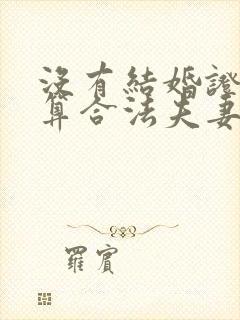 沒有結婚證
算合法夫妻
羅賓